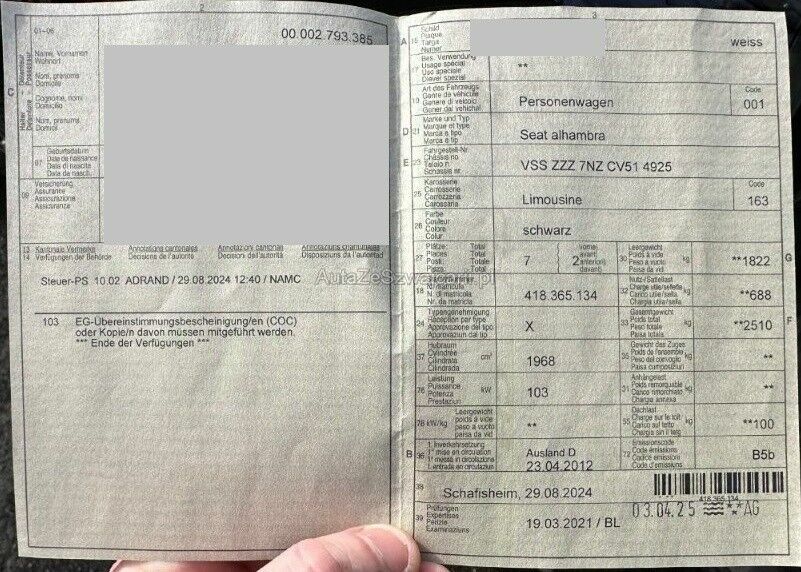 2
01-06
00.002 793.385
C
Name, Vornamen
Wohnort
Nom, prénoms
Domicile
Cognome, nomi
Domicilio
Num, prenums
Domicil
07
Geburtsdatum
Date de naissance
Data di nascita
Data da nasch.
09
Versicherung
Assurance
Assicurazione
Assicuranza
13 Kantonale Vermerke Annotations cantonales Annotazioni cantonali Annotaziuns chantunalas
14 Verfügungen der Behörde Décisions de l'autorité Decisioni dell'autorità Disposiziuns da l'autoritad
Steuer-PS 10.02 ADRAND / 29.08.2024 12:40 / NAMC
103 EG-Übereinstimmungsbescheinigung/en (COC)
oder Kopie/n davon müssen mitgeführt werden.
*** Ende der Verfügungen ***
AutaZeSzwajcarii.pl
3
A 15
Schild
Plaque
Targa
Numer
weiss
17
Bes. Verwendung
Usage spécial
Uso speciale
Diever spezial
**
19
Art des Fahrzeugs
Genre de véhicule
Genere di veicolo
Gener dal vehichel
Personenwagen
Code
001
D 21
Marke und Typ
Marque et type
Marca e tipo
Marca e tip
Seat alhambra
E 23
Fahrgestell-Nr.
Châssis no
Telaio n.
Schassis nr.
VSS ZZZ 7NZ CV51 4925
25
Karosserie
Carrosserie
Carrozzeria
Carossaria
Limousine
Code
163
26
Farbe
Couleur
Colore
Colur
schwarz
27
Plätze Total
Places Total
Posti Total
Plazs Total
7
2
vorne
avant
anteriori
davant
30
Leergewicht
Poids à vide
Peso a vuoto
Paisa da vid
kg
**1822
G
18
N. di matricola
Nr. da matricla
418.365.134
32
Nutz-/Sattellast
Charge utile/sellette
Carico utile/sella
Chargia utila/sella
kg
**688
24
Typengenehmigung
Réception par type
Approvazione del tipo
Approvaziun dal tip
X
33
Gesamtgewicht
Poids total
Peso totale
Paisa totala
kg
**2510
F
37
Hubraum
Cylindrée
Cilindrata
Cilindrada
cm³
1968
35
Gewicht des Zuges
Poids de l'ensemble
Peso del convoglio
Paisa cumposiziun
kg
**
76
Leistung
Puissance
Potenza
Prestaziun
kW
103
31
Anhängelast
Poids remorquable
Carico rimorchiato
Chargia annexa
kg
**
78 kW/kg
Leergewicht
poids à vide
peso a vuoto
paisa da vid
**
55
Dachlast
Charge sur le toit
Carico sul tetto
Chargia sin il tetg
kg
**100
B 36
1. Inverkehrsetzung
1re mise en circulation
1a messa in circolazione
1. entrada en circulaziun
Ausland D
23.04.2012
72
Emissionscode
Code émissions
Codice emissioni
Code d'emissiuns
B5b
38
Schafisheim, 29.08.2024
418.365.134
39
Prüfungen
Expertises
Perizie
Examinaziuns
19.03.2021 / BL
03.04.25 ** AG